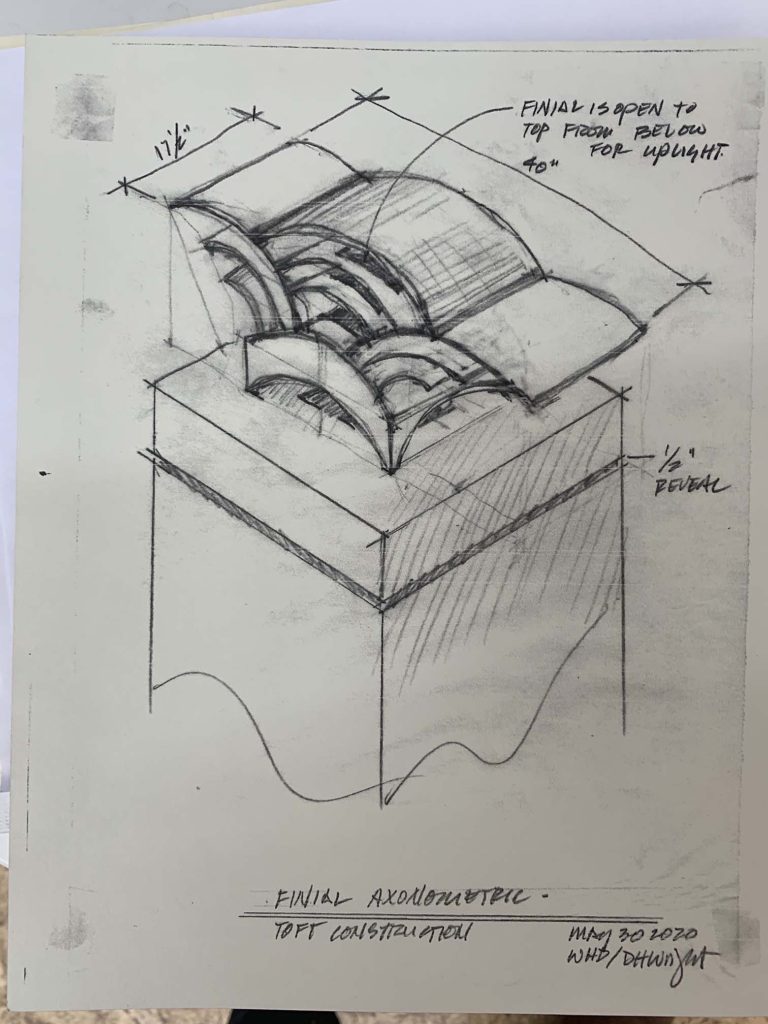 17½"
FINIAL IS OPEN TO
TOP FROM BELOW
FOR UPLIGHT.
40"
½"
REVEAL
FINIAL AXONOMETRIC -
TOFT CONSTRUCTION
MAY 30 2020
WHD/DHWright